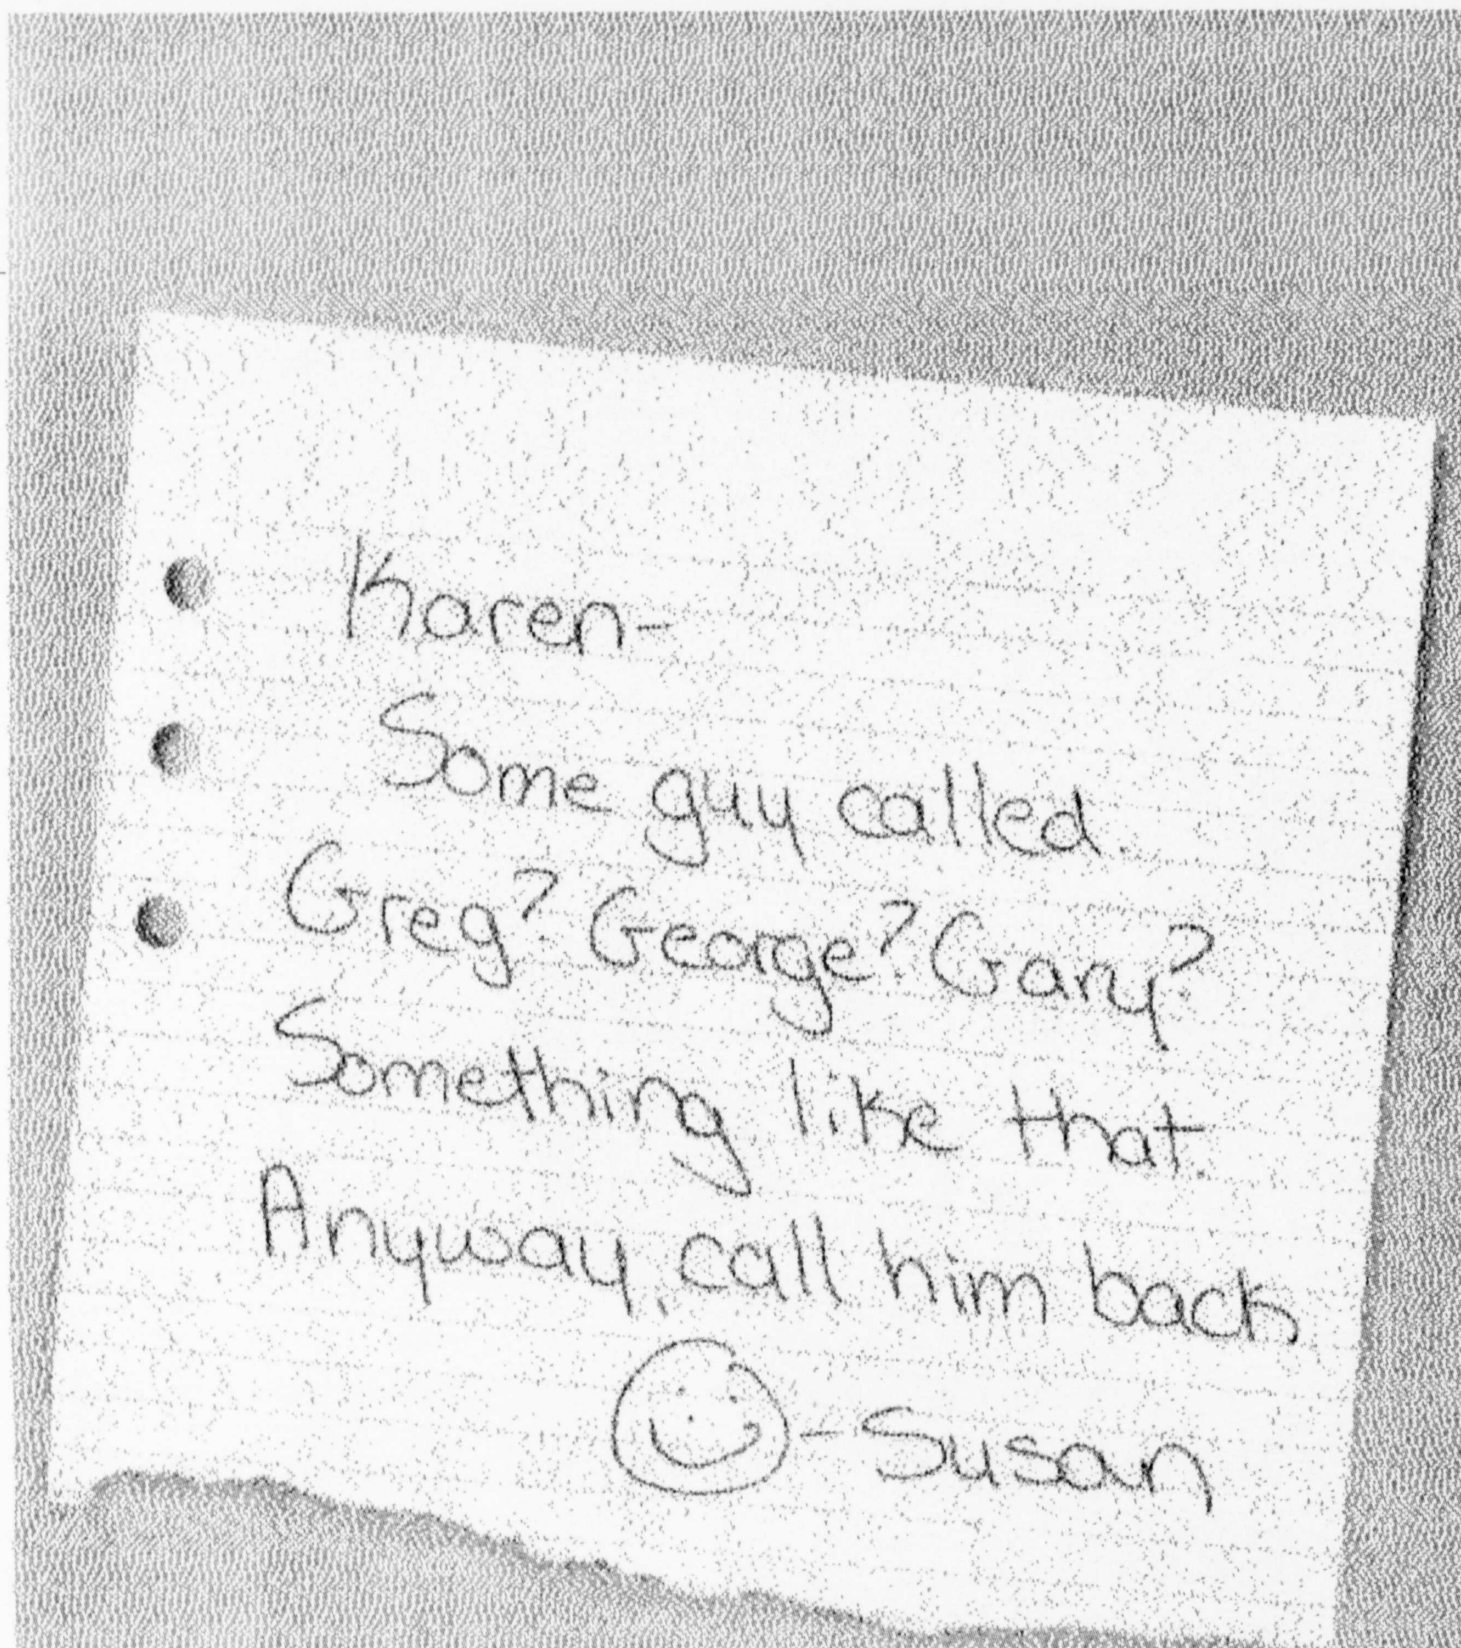 Karen-
Some guy called.
Greg? George? Gary?
Something like that.
Anyway, call him back
-Susan